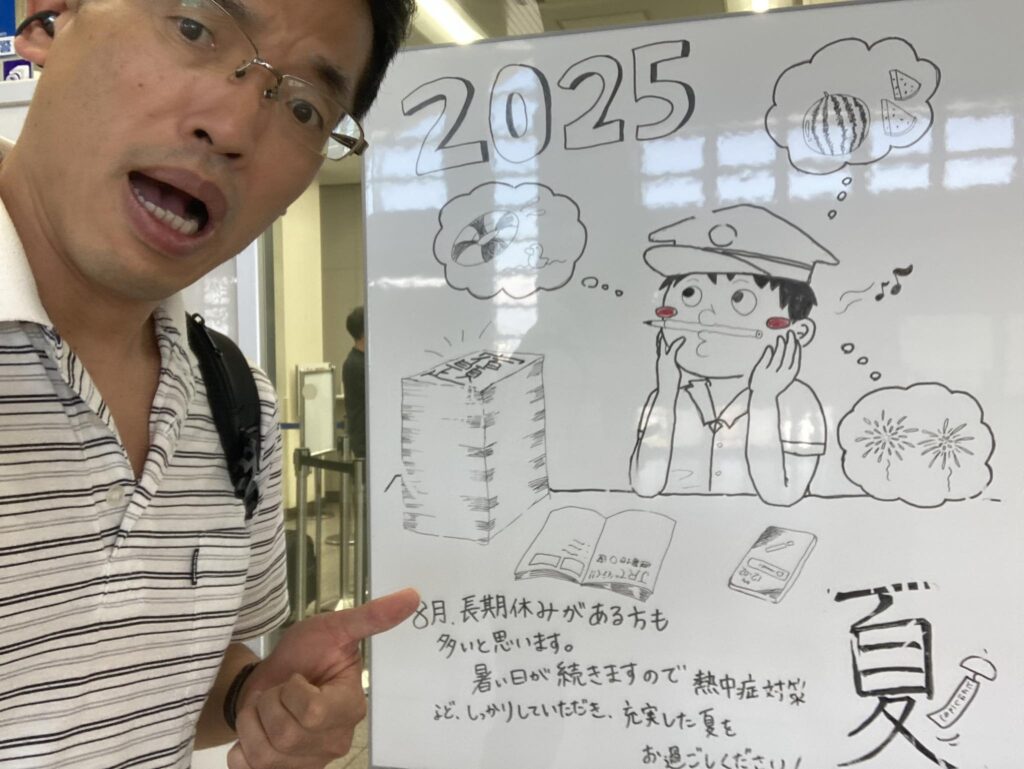 2025
8月、長期休みがある方も
多いと思います。
暑い日が続きますので熱中症対策
など、しっかりしていただき、充実した夏を
お過ごしください!
夏